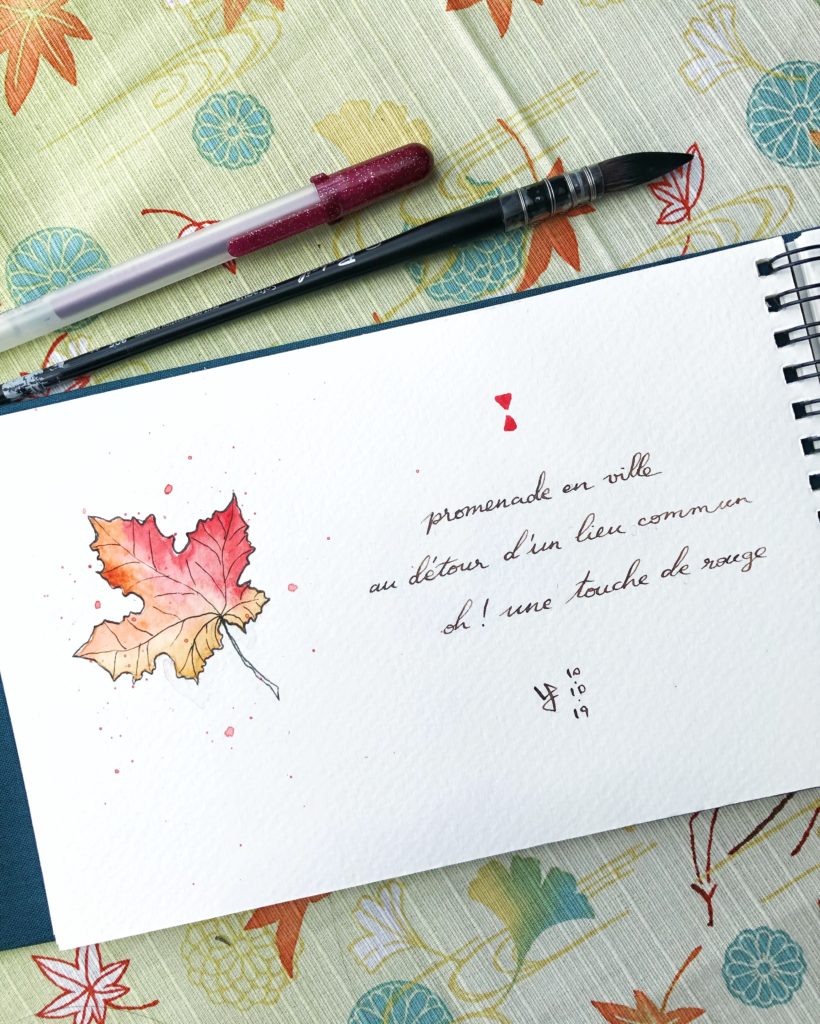 promenade en ville
au détour d'un lieu commun
oh! une touche de rouge
y
10
10
19